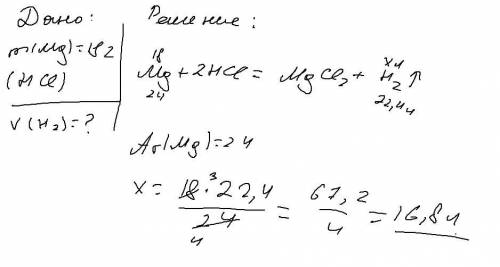 Дано:
m(Mg)=18г
(HCl)
V(H2)=?
Решение:
18 xл
Mg + 2HCl = MgCl2 + H2↑
24 22,4л
Ar(Mg)=24
x = 18·22,4 / 24 = 67,2 / 4 = 16,8л
3
4